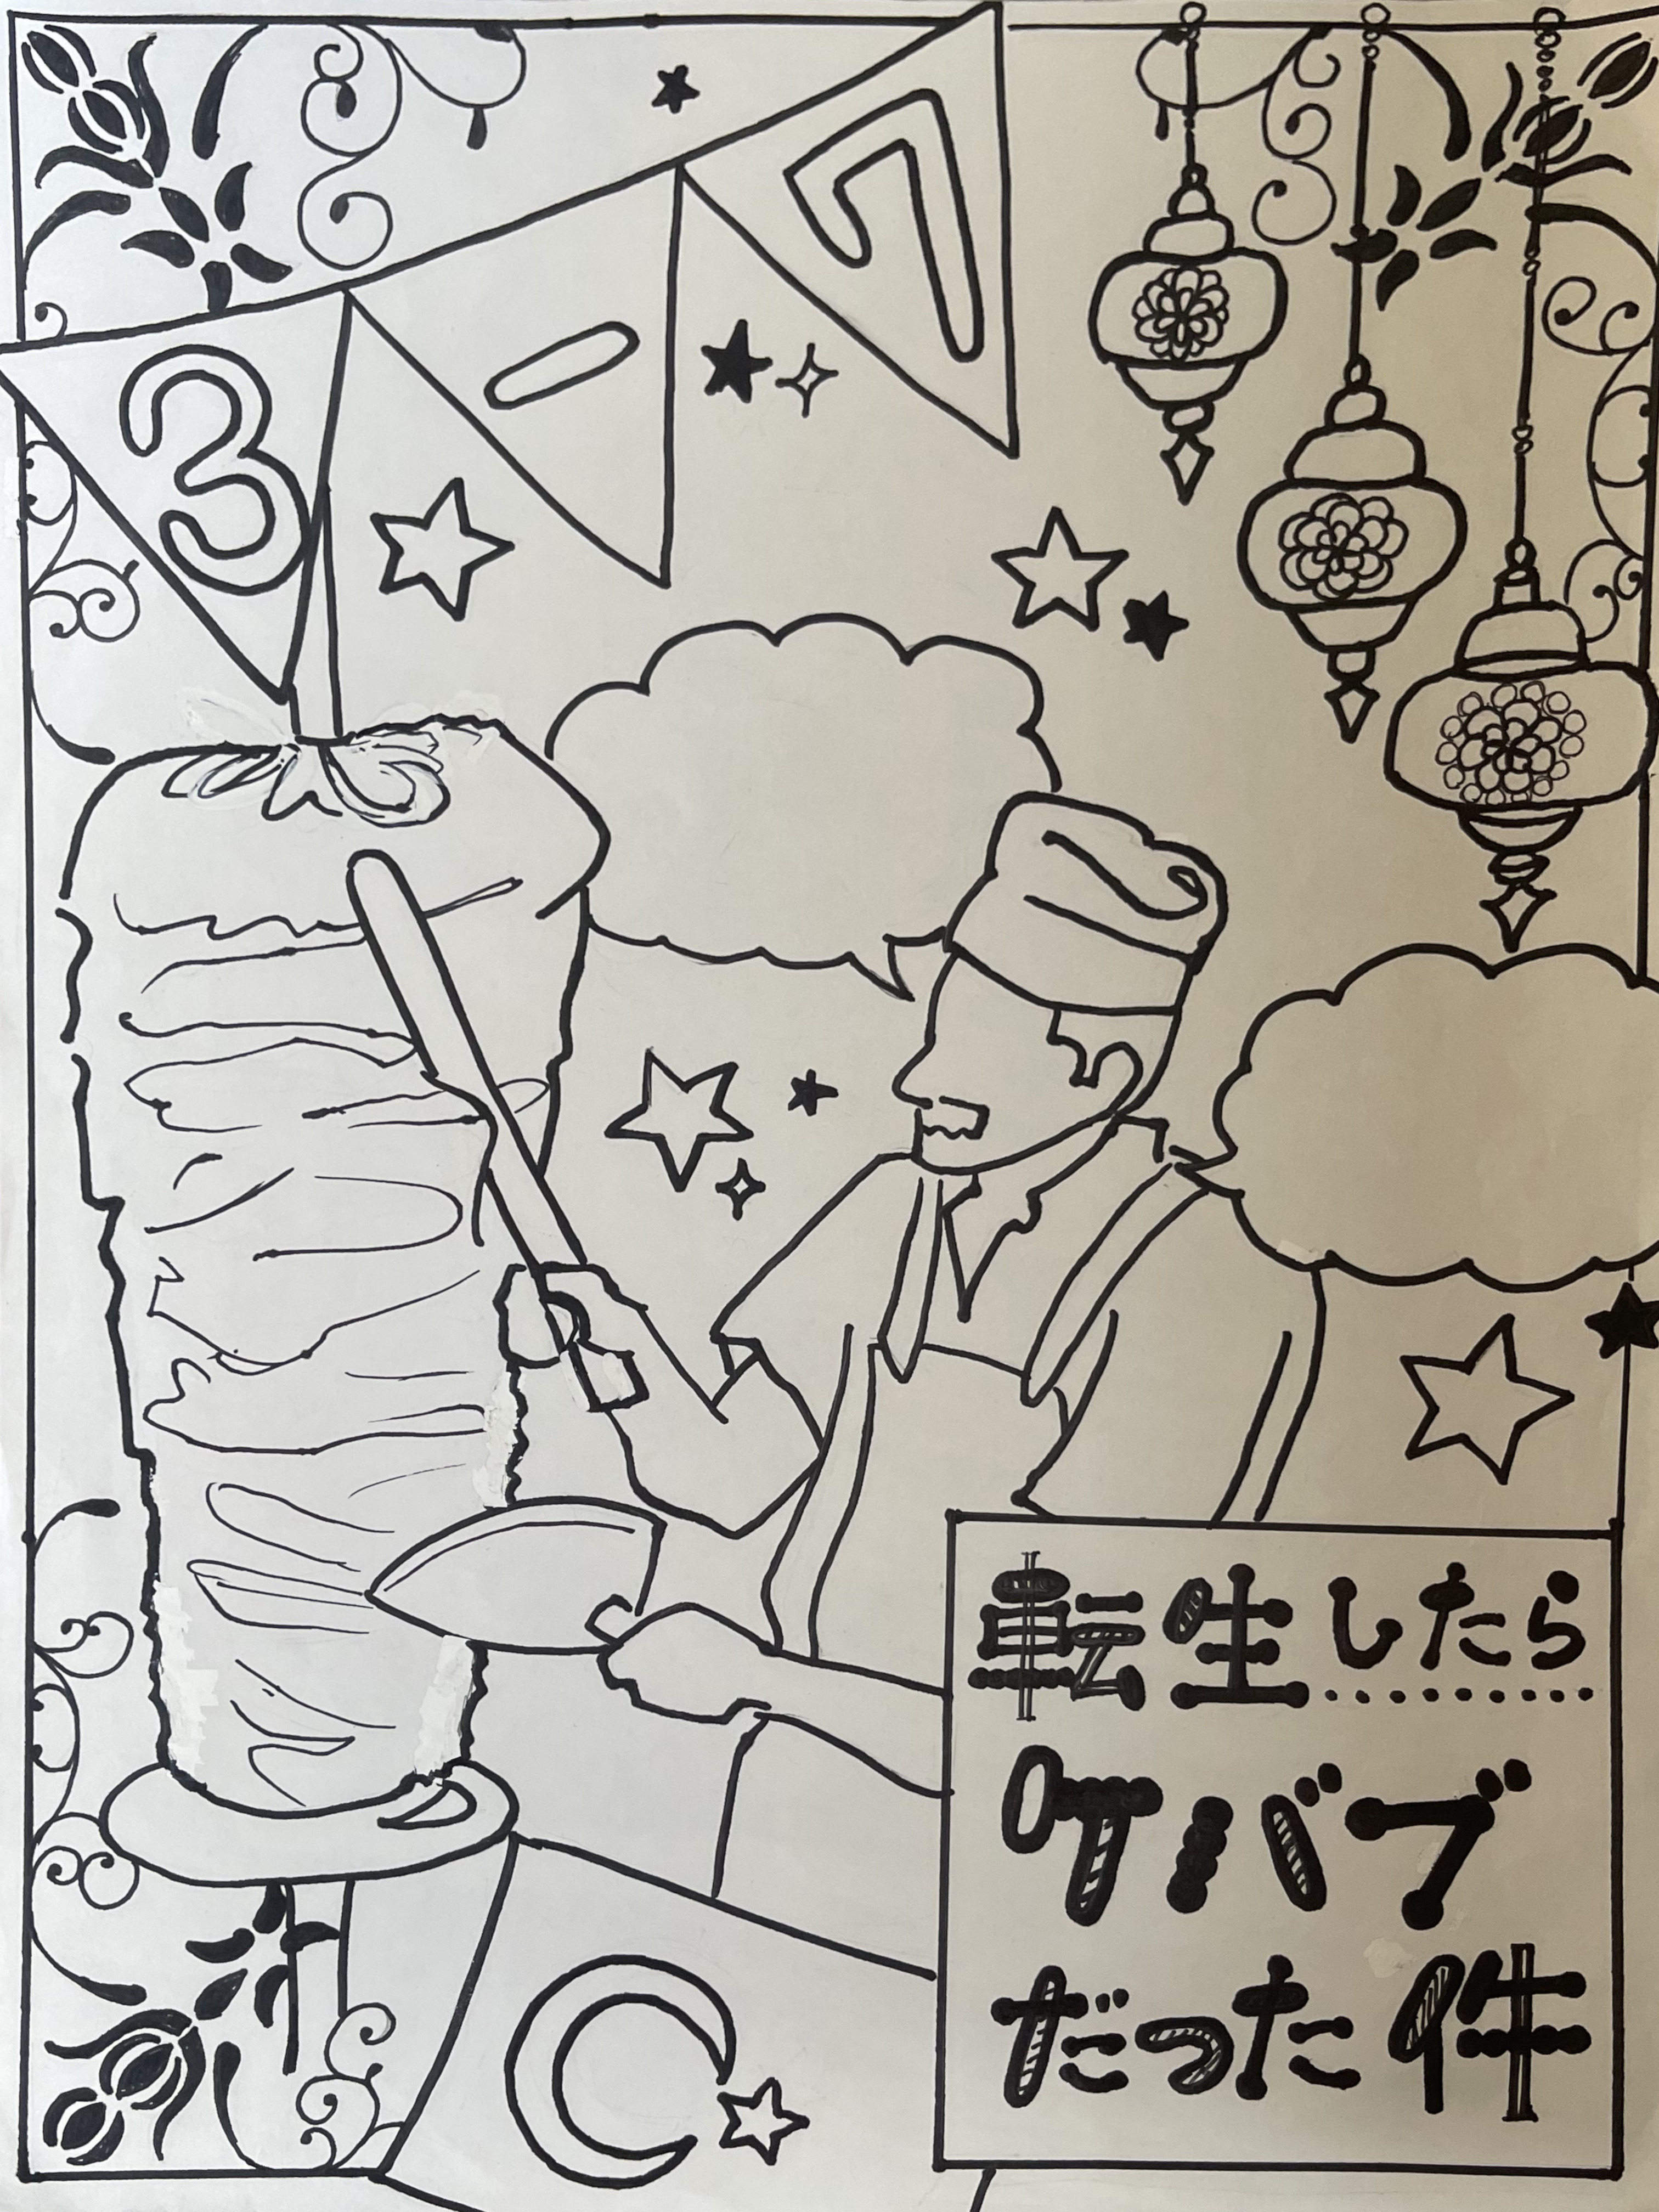 3-7
転生したら
ケバブ
だった件